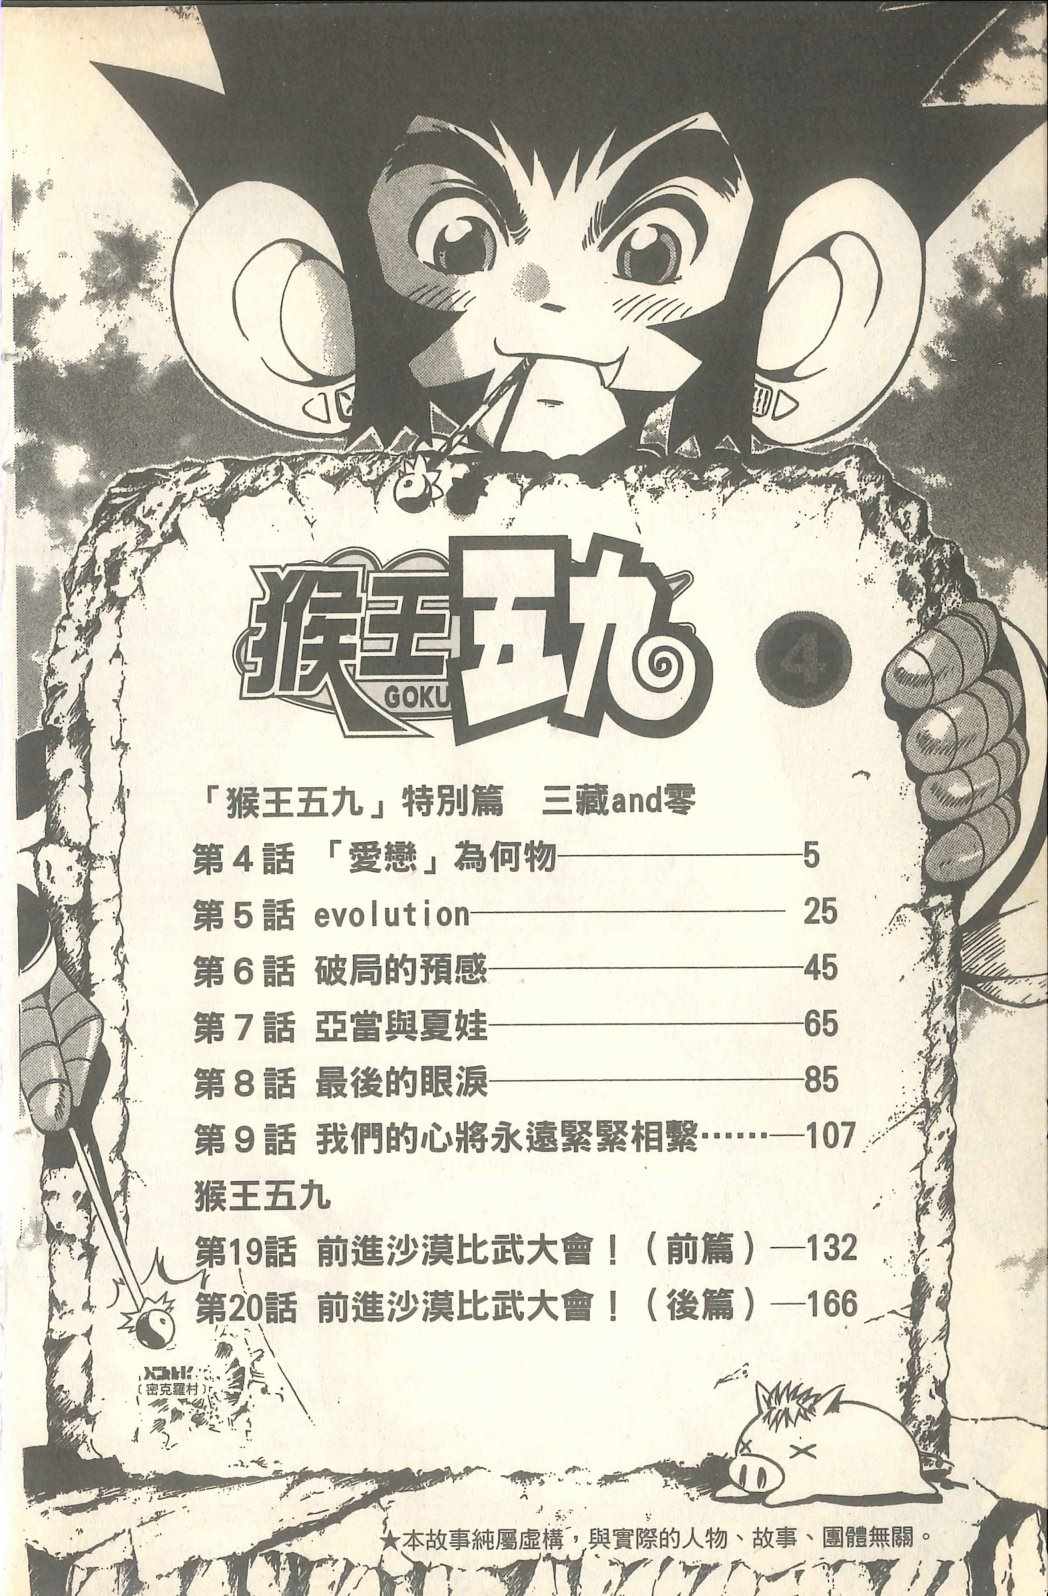 猴王五九
GOKU
4
「猴王五九」特別篇　三藏and零
第4話 「愛戀」為何物——5
第5話 evolution——25
第6話 破局的預感——45
第7話 亞當與夏娃——65
第8話 最後的眼淚——85
第9話 我們的心將永遠緊緊相繫……—107
猴王五九
第19話 前進沙漠比武大會！（前篇）—132
第20話 前進沙漠比武大會！（後篇）—166
（密克羅村）
★本故事純屬虛構，與實際的人物、故事、團體無關。